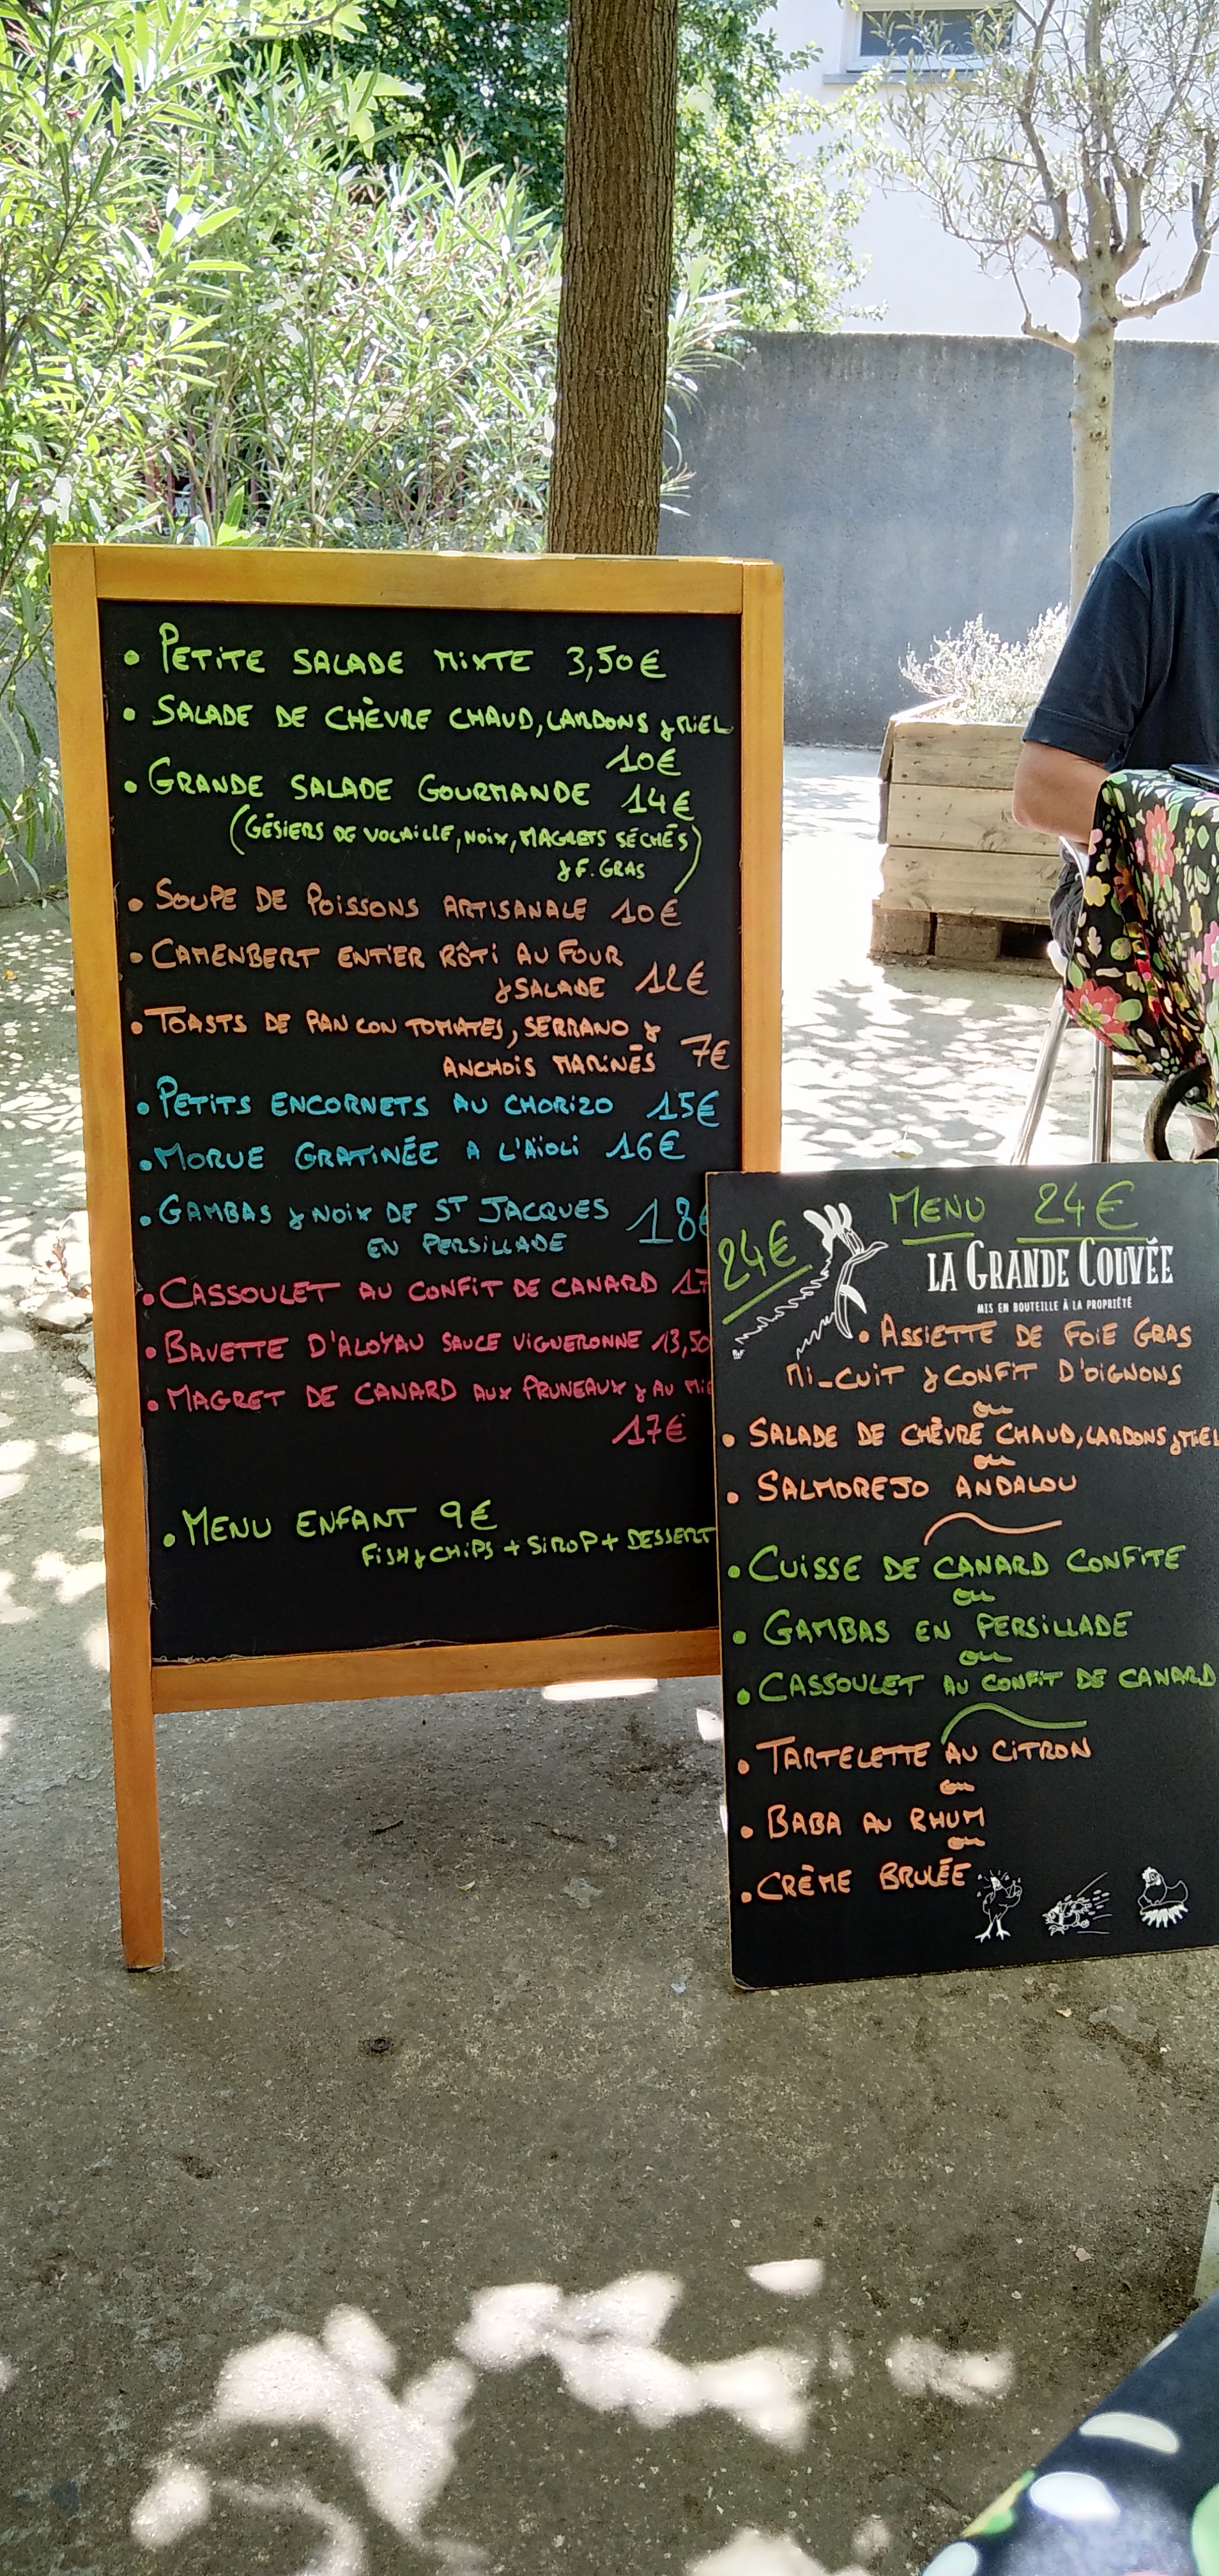 • PETITE SALADE MIXTE 3,50€
• SALADE DE CHÈVRE CHAUD, LARDONS & MIEL
10€
• GRANDE SALADE GOURMANDE 14€
(GÉSIERS DE VOLAILLE, NOIX, MAGRETS SÉCHÉS)
& F. GRAS
• SOUPE DE POISSONS ARTISANALE 10€
• CAMENBERT ENTIER RÔTI AU FOUR
& SALADE 12€
• TOASTS DE PAN CON TOMATES, SERRANO &
ANCHOIS MARINÉS 7€
• PETITS ENCORNETS AU CHORIZO 15€
• MORUE GRATINÉE A L'AÏOLI 16€
• GAMBAS & NOIX DE ST JACQUES 18€
EN PERSILLADE
• CASSOULET AU CONFIT DE CANARD 17
• BAVETTE D'ALOYAU SAUCE VIGNERONNE 13,50
• MAGRET DE CANARD AUX PRUNEAUX & AU MI
17€
• MENU ENFANT 9€
FISH & CHIPS + SIROP + DESSERT
MENU 24€
24€
LA GRANDE COUVÉE
MIS EN BOUTEILLE À LA PROPRIÉTÉ
• ASSIETTE DE FOIE GRAS
MI-CUIT & CONFIT D'OIGNONS
ou
• SALADE DE CHÈVRE CHAUD, LARDONS & MIEL
ou
• SALMOREJO ANDALOU
• CUISSE DE CANARD CONFITE
ou
• GAMBAS EN PERSILLADE
ou
• CASSOULET AU CONFIT DE CANARD
• TARTELETTE AU CITRON
ou
• BABA AU RHUM
ou
• CRÈME BRULÉE